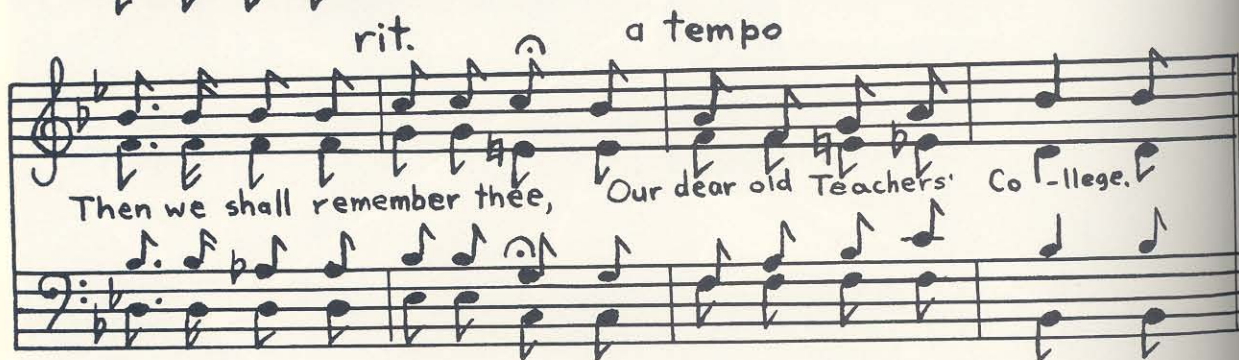 rit. a tempo
Then we shall remember thee, Our dear old Teachers' Co-llege.